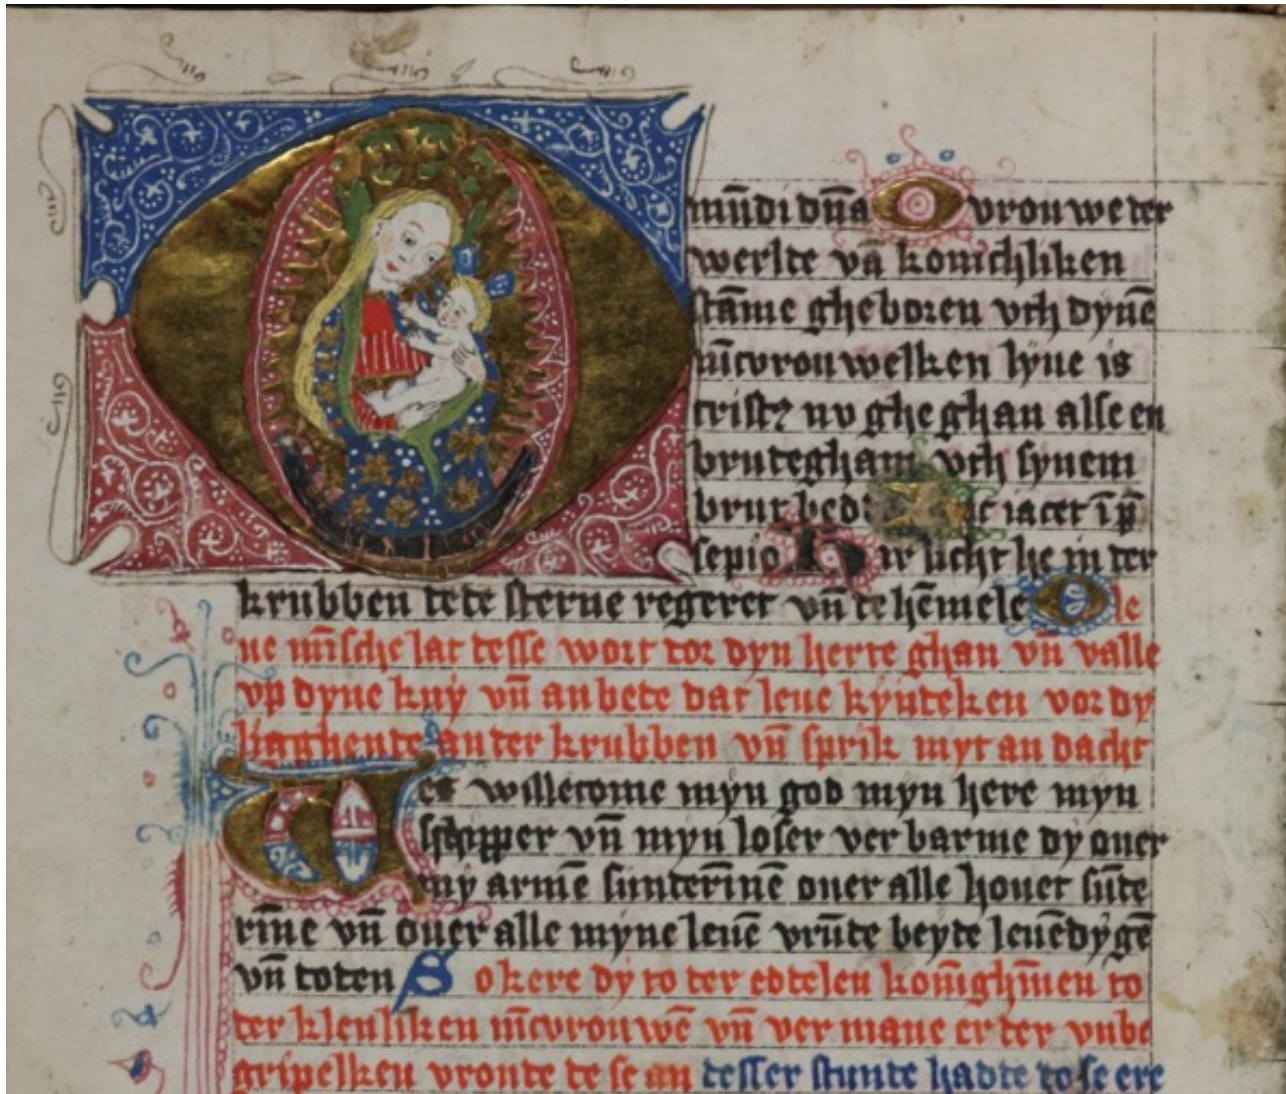 O mūdi dn̄a O vrouwe der
werlde vā konichliken
stāme gheboren vth dynē
iūcvrouwelken lyue is
cristꝰ nv ghe ghan alse en
brutegham vth synem
brut bed iacet ī p̄
sepio Hir licht he in der
krubben dede sterne regeret vn̄ de hēmele O le
ue mīsche lat desse wort tor dyn herte ghan vn̄ valle
vp dyne kny vn̄ an bede dat leue kynteken vor dy
ligghende an der krubben vn̄ sprik myt an dacht
et willecome myn god myn here myn
schipper vn̄ myn loser ver barme dy ouer
my armē sunderīnē ouer alle houet sūde
rīne vn̄ ouer alle myne leuē vrūde beyde leuēdygē
vn̄ doden So kere dy to der eddelen konīghīnen to
der klenliken iūcvrouwē vn̄ ver mane er der vnbe
gripelken vronde de se an desser stunde hadde do se ere